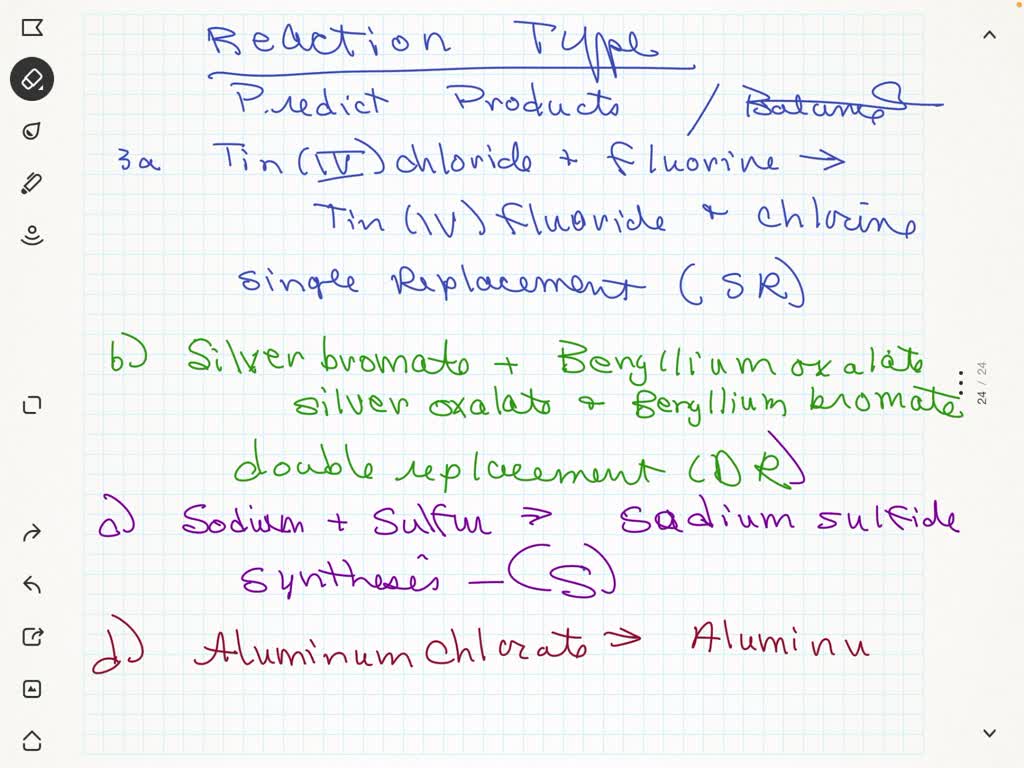 Reaction Type
Predict Products / Balance
3a Tin (IV) chloride + fluorine →
Tin (IV) fluoride & chlorine
single Replacement (SR)
b) Silver bromate + Beryllium oxalate
silver oxalate & Beryllium bromate
double replacement (DR)
c) Sodium + Sulfur → Sodium sulfide
synthesis - (S)
d) Aluminum Chlorate → Aluminu
24 / 24